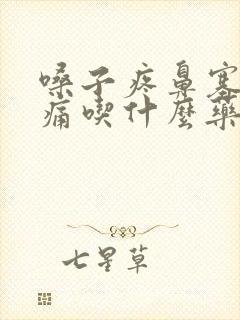 嗓子疼鼻塞
痛喫什麼藥
七星草